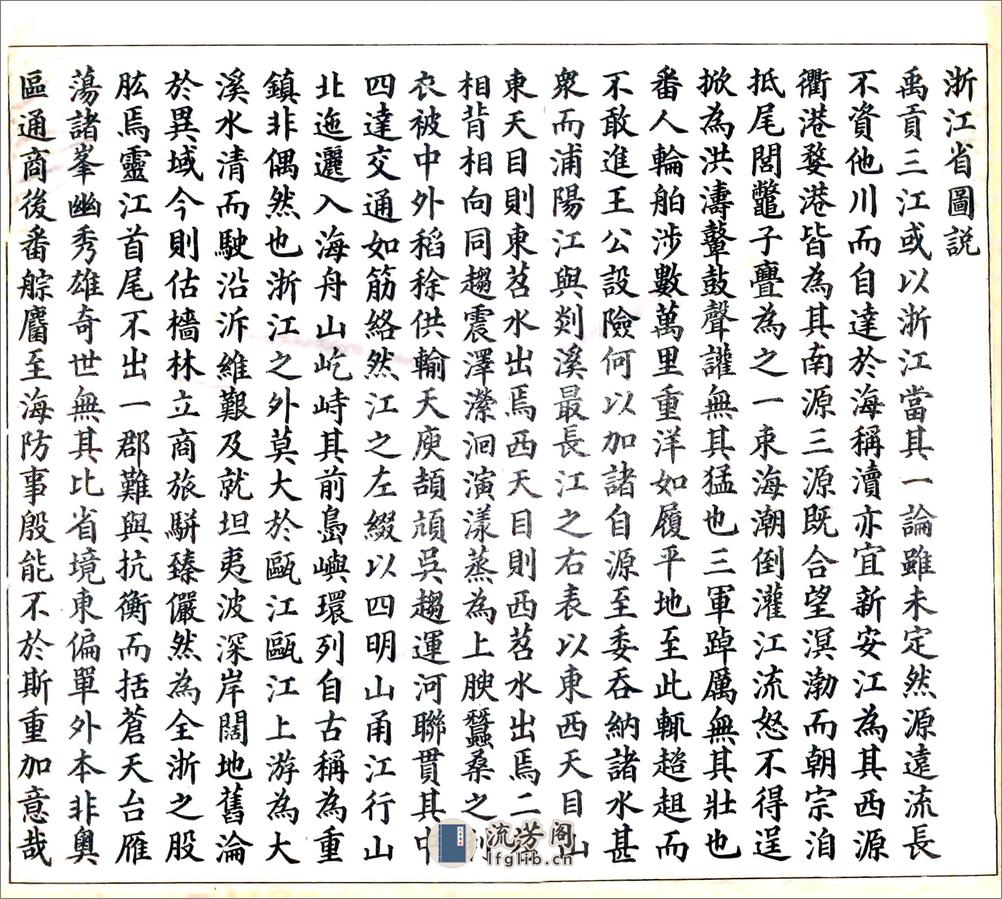 浙江省圖説
禹貢三江或以浙江當其一論雖未定然源遠流長
不資他川而自達於海稱瀆亦宜新安江為其西源
衢港婺港皆為其南源三源既合望溟渤而朝宗洎
抵尾閭鼈子亹為之一束海潮倒灌江流怒不得逞
掀為洪濤鼙鼓聲讙無其猛也三軍踔厲無其壯也
番人輪舶涉數萬里重洋如履平地至此輒趦趄而
不敢進王公設險何以加諸自源至委吞納諸水甚
衆而浦陽江與剡溪最長江之右表以東西天目山
東天目則東苕水出焉西天目則西苕水出焉二
相背相向同趨震澤瀠洄演漾蒸為上腴蠶桑之
衣被中外稻稌供輸天庾頡頏吳趨運河聯貫其中
四達交通如筋絡然江之左綴以四明山甬江行山
北迤邐入海舟山屹峙其前島嶼環列自古稱為重
鎮非偶然也浙江之外莫大於甌江甌江上游為大
溪水清而駛沿泝維艱及就坦夷波深岸闊地舊淪
於異域今則估檣林立商旅駢臻儼然為全浙之股
肱焉靈江首尾不出一郡難與抗衡而括蒼天台雁
蕩諸峯幽秀雄奇世無其比省境東偏單外本非奧
區通商後番艅麕至海防事殷能不於斯重加意哉
流芳阁
lfglib.cn